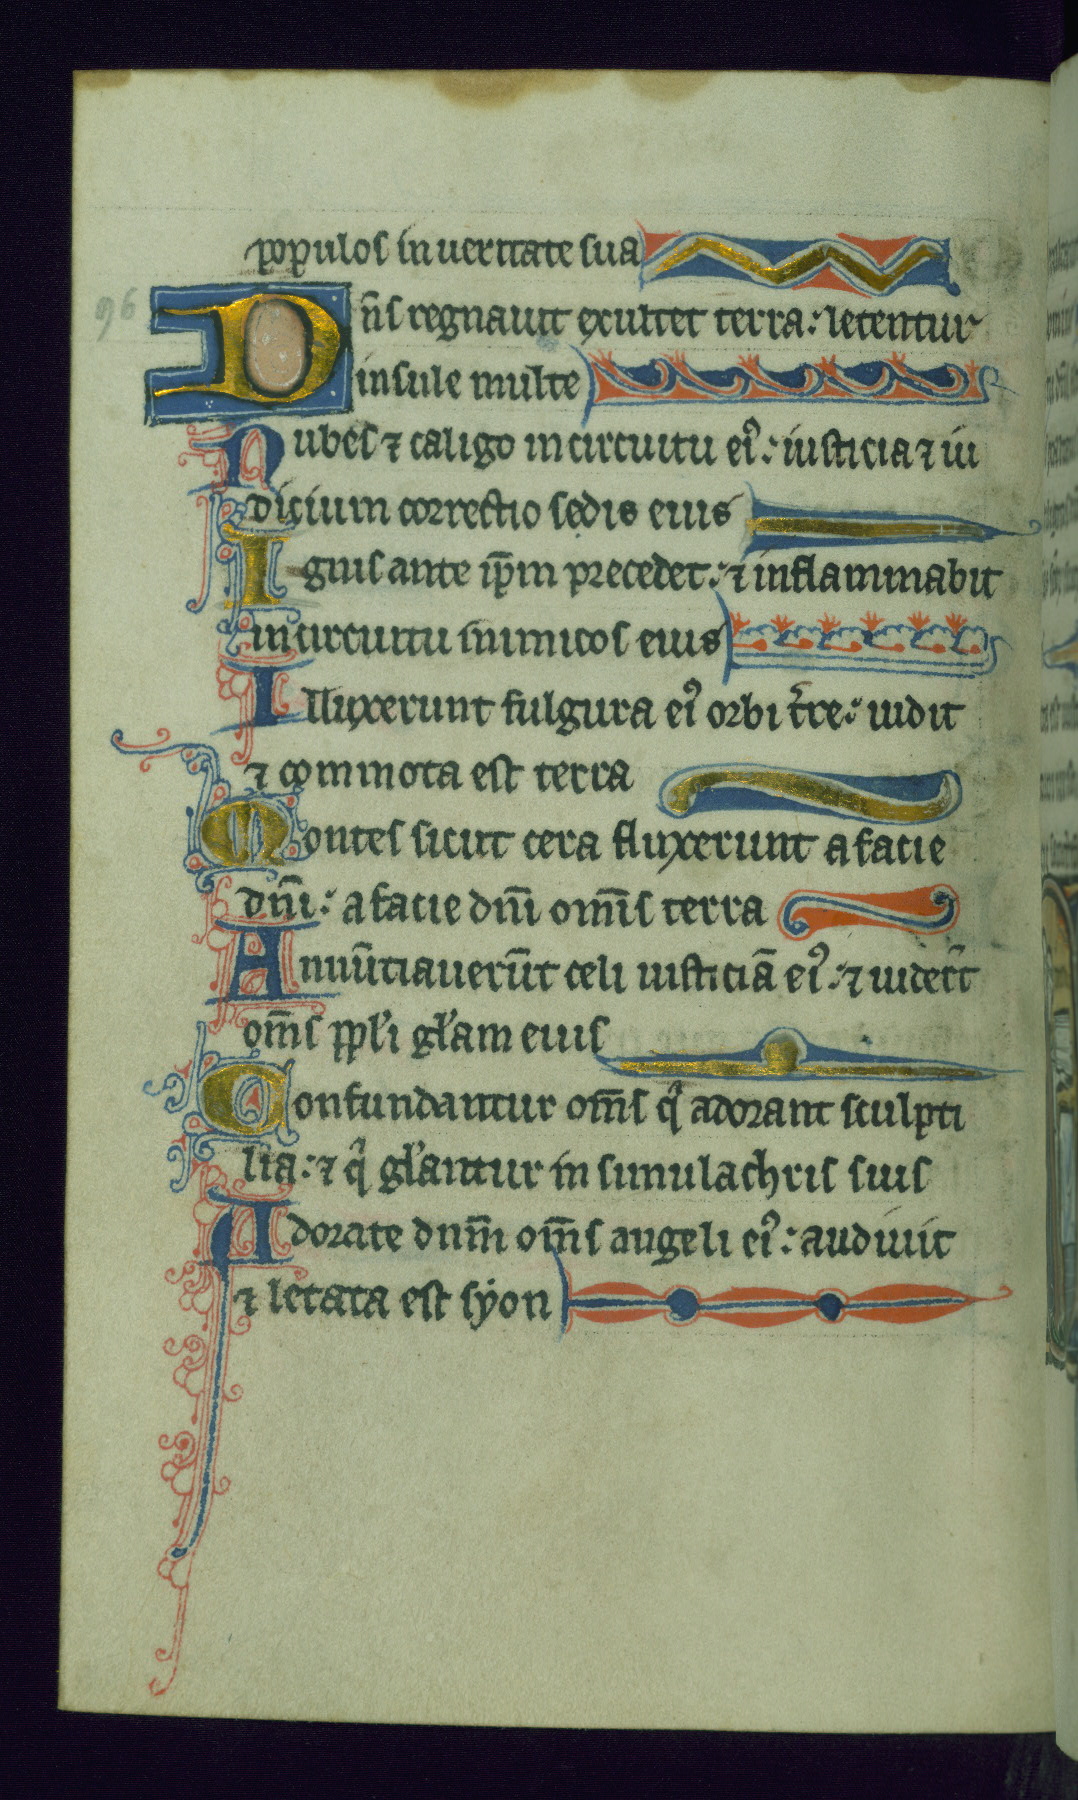 populos in ueritate sua
96
Dn̄s regnauit exultet terra: letentur
insule multe
Nubes ⁊ caligo in circuitu eiꝰ: iusticia ⁊ iu
dicium correctio sedis eius
Ignis ante ip̄m precedet: ⁊ inflammabit
in circuitu inimicos eius
Illuxerunt fulgura eiꝰ orbi t̄re: uidit
⁊ commota est terra
Montes sicut cera fluxerunt a facie
dn̄i: a facie dn̄i om̄is terra
Annūtiauerūt celi iusticiā eiꝰ: ⁊ uider̄t
om̄s ppl̄i gl̄am eius
Confundantur om̄s qͥ adorant sculpti
lia: ⁊ qͥ gl̄antur in simulachris suis
Adorate dnm̄ om̄s angeli eiꝰ: audiuit
⁊ letata est syon